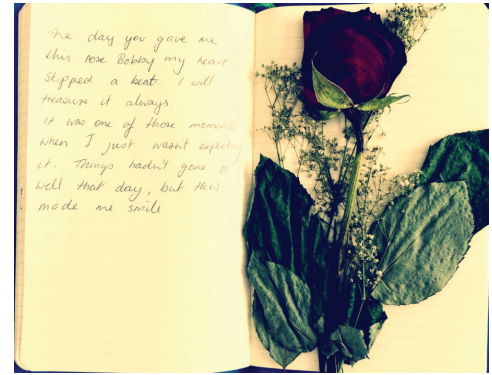 The day you gave me
this rose Bobby my heart
skipped a beat. I will
treasure it always.
It was one of those moments
when I just wasn't expecting
it. Things hadn't gone so
well that day, but this
made me smile